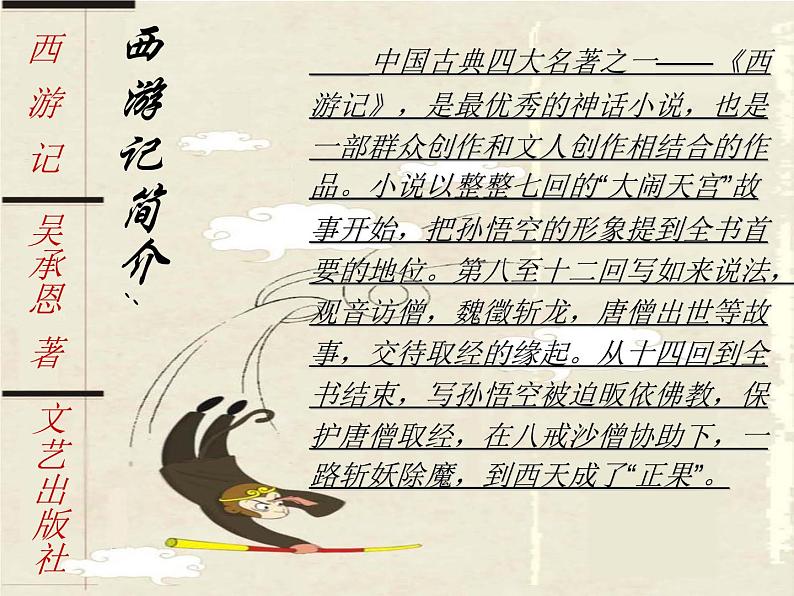 西游记
吴承恩 著
文艺出版社
西游记简介:
中国古典四大名著之一——《西
游记》，是最优秀的神话小说，也是
一部群众创作和文人创作相结合的作
品。小说以整整七回的“大闹天宫”故
事开始，把孙悟空的形象提到全书首
要的地位。第八至十二回写如来说法，
观音访僧，魏徵斩龙，唐僧出世等故
事，交待取经的缘起。从十四回到全
书结束，写孙悟空被迫皈依佛教，保
护唐僧取经，在八戒沙僧协助下，一
路斩妖除魔，到西天成了“正果”。